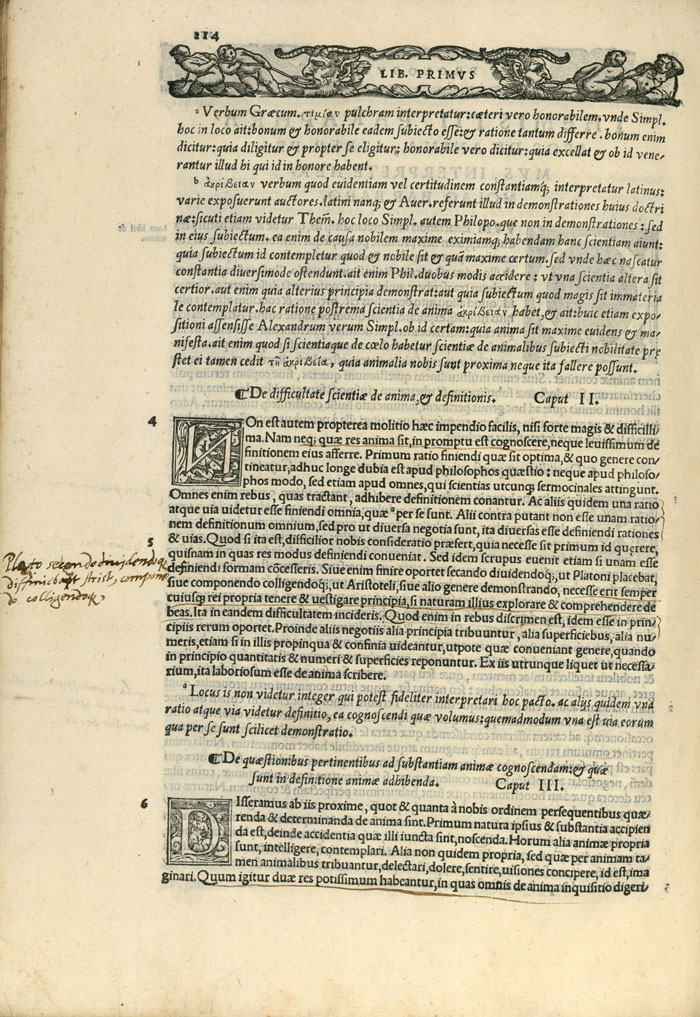 214
LIB. PRIMVS
ᵃ Verbum Græcum. τιμίαν pulchram interpretatur:cæteri vero honorabilem. vnde Simpl.
hoc in loco ait:bonum & honorabile eadem subiecto esse:& ratione tantum differre. bonum enim
dicitur:quia diligitur & propter se eligitur: honorabile vero dicitur: quia excellat & ob id vene/
rantur illud hi qui id in honore habent.
ᵇ ἀκρίβειαν verbum quod euidentiam vel certitudinem constantiamq; interpretatur latinus:
varie exposuerunt auctores. latini nanq; & Auer. referunt illud in demonstrationes huius doctri
næ: sicuti etiam videtur Them̃. hoc loco Simpl. autem Philopo. que non in demonstrationes : sed
in eius subiectum. ea enim de causa nobilem maxime eximiamq; habendam hanc scientiam aiunt:
quia subiectum id contempletur quod & nobile sit & quã maxime certum. sed vnde hæc nascatur
constantia diuersimode ostendunt. ait enim Phil. duobus modis accidere : vt vna scientia altera sit
certior. aut enim quia alterius principia demonstrat: aut quia subiectum quod magis sit immateria
le contemplatur. hac ratione postrema scientia de anima ἀκρίβειαν habet, & ait: huic etiam expo/
sitioni assensisse Alexandrum verum Simpl. ob id certam: quia anima sit maxime euidens & ma/
nifesta. ait enim quod si scientiaque de cœlo habetur scientiæ de animalibus subiecti nobilitate præ
stet ei tamen cedit τῇ ἀκριβείᾳ, quia animalia nobis sunt proxima neque ita fallere possunt.
¶De difficultate scientiæ de anima, & definitionis. Caput II.
4
NOn est autem propterea molitio hæc impendio facilis, nisi forte magis & difficilli
ma. Nam neq; quæ res anima sit, in promptu est cognoscere, neque leuissimum de
finitionem eius afferre. Primum ratio finiendi quæ sit optima, & quo genere con/
tineatur, adhuc longe dubia est apud philosophos quæstio : neque apud philoso/
phos modo, sed etiam apud omnes, qui scientias utcunq; sermocinales attingunt.
Omnes enim rebus, quas tractant, adhibere definitionem conantur. Ac aliis quidem una ratio
atque uia uidetur esse finiendi omnia, quæ ᵃ per se sunt. Alii contra putant non esse unam ratio/
nem definitionum omnium, sed pro ut diuersa negotia sunt, ita diuersas esse definiendi rationes
5
& uias. Quod si ita est, difficilior nobis consideratio præfert, quia necesse sit primum id quęrere,
quisnam in quas res modus definiendi conueniat. Sed idem scrupus euenit etiam si unam esse
Plato secando diuidendoq;
definiendi formam cõcesseris. Siue enim finire oportet secando diuidendoq;, ut Platoni placebat,
siue componendo colligendoq;, ut Aristoteli, siue alio genere demonstrando, necesse erit semper
do colligendoq;,
cuiusq; rei propria tenere & uestigare principia, si naturam illius explorare & comprehendere de
beas. Ita in eandem difficultatem incideris. Quod enim in rebus discrimen est, idem esse in prin/
cipiis rerum oportet. Proinde aliis negotiis alia principia tribuuntur, alia superficiebus, alia nu/
meris, etiam si in illis propinqua & confinia uideantur, utpote quæ conueniant genere, quando
in principio quantitatis & numeri & superficies reponuntur. Ex iis utrunque liquet ut necessa/
rium, ita laboriosum esse de anima scribere.
ᵃ Locus is non videtur integer qui potest fideliter interpretari hoc pacto. ac alijs quidem vna
ratio atque via videtur definitio, ea cognoscendi quæ volumus: quemadmodum vna est uia eorum
qua per se sunt scilicet demonstratio.
¶De quæstionibus pertinentibus ad substantiam animæ cognoscendam: & quæ
sunt in definitione animæ adhibenda. Caput III.
6
DIsseramus ab iis proxime, quot & quanta à nobis ordinem persequentibus quæ/
renda & determinanda de anima sint. Primum natura ipsius & substantia accipien
da est, deinde accidentia quæ illi iuncta sint, noscenda. Horum alia animæ propria
sunt, intelligere, contemplari. Alia non quidem propria, sed quæ per animam ta/
men animalibus tribuantur, delectari, dolere, sentire, uisiones concipere, id est, ima
ginari. Quum igitur duæ res potissimum habeantur, in quas omnis de anima inquisitio digeri/